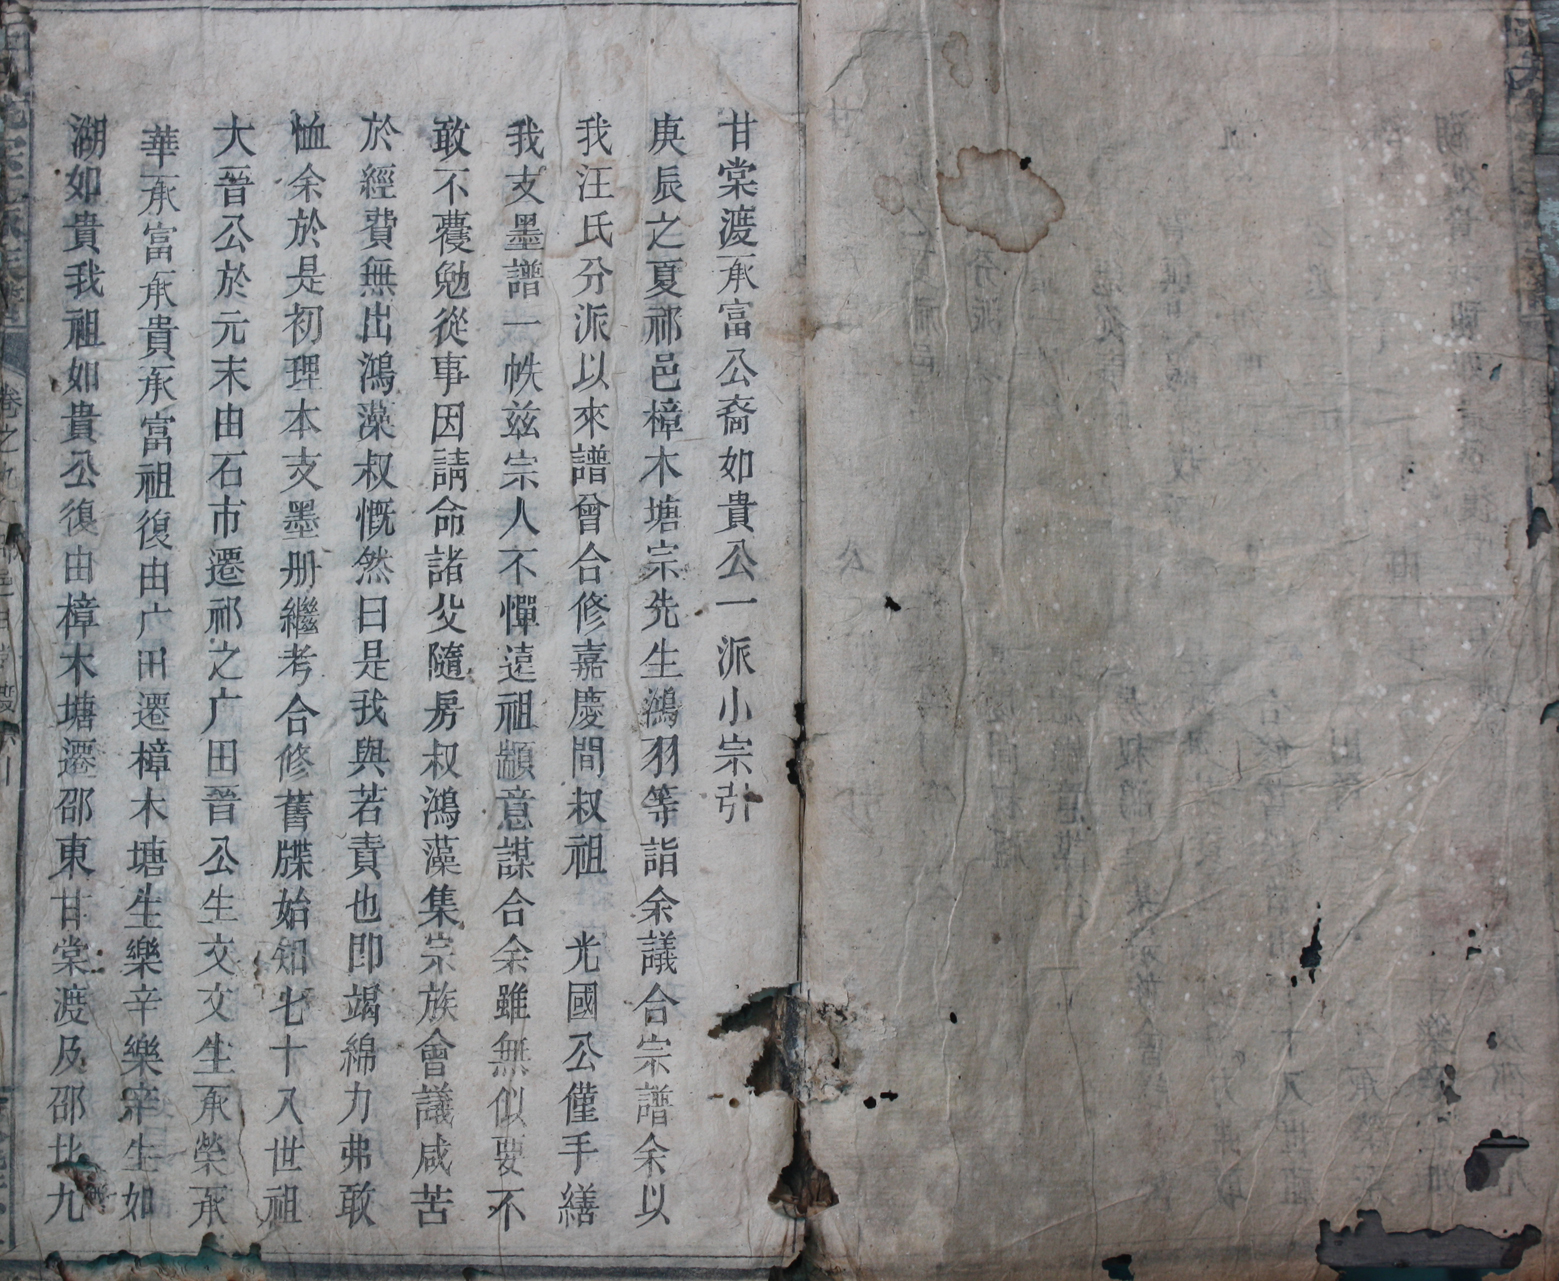 甘棠渡承富公裔如貴公一派小宗引
庚辰之夏祁邑樟木塘宗先生鴻羽等詣余議合宗譜余以
我汪氏分派以來譜曾合修嘉慶間叔祖 光國公僅手繕
我支墨譜一帙兹宗人不憚遠祖顓意謀合余雖無似要不
敢不覆勉從事因請命諸父隨房叔鴻藻集宗族會議咸苦
於經費無出鴻藻叔慨然曰是我與若責也即竭綿力弗敢
恤余於是初理本支墨册繼考合修舊牒始知七十入世祖
大晉公於元末由石市遷祁之广田晉公生交文生承榮承
華承富承貴承富祖復由广田遷樟木塘生樂辛樂宰生如
湖如貴我祖如貴公復由樟木塘遷邵東甘棠渡及邵北九
卷之